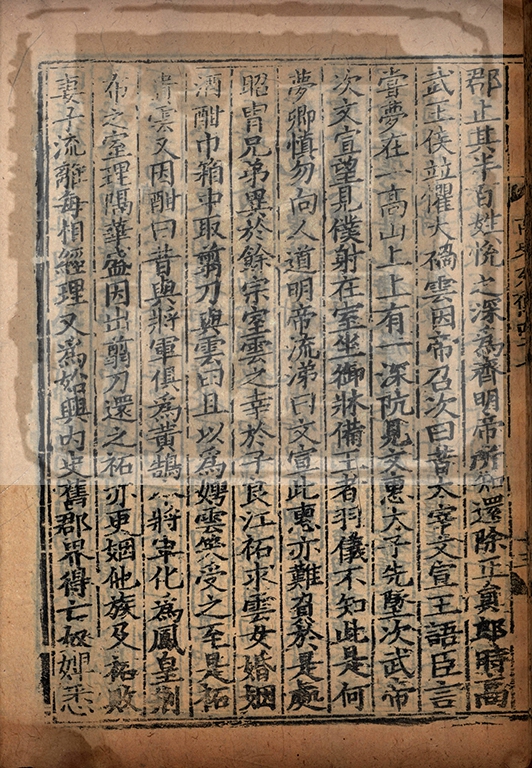 郡止其半百姓悅之深為齊明帝所知還除正員郎時高
武王侯竝懼大禍雲因帝召次曰昔太宰文宣王語臣言
嘗夢在一高山上上有一深阬見文惠太子先墜次武帝
次文宣望見僕射在室坐御牀備王者羽儀不知此是何
夢卿慎勿向人道明帝流涕曰文宣此惠亦難負於是處
昭胄兄弟異於餘宗室雲之幸於子良江祏求雲女婚姻
酒酣巾箱中取翦刀與雲曰且以為娉雲笑受之至是祏
貴雲又因酣曰昔與將軍俱為黃鵠今將軍化為鳳皇荊
布之室理隔華盛因出翦刀還之祏亦更姻他族及祏敗
妻子流離每相經理又為始興內史舊郡界得亡奴婢悉